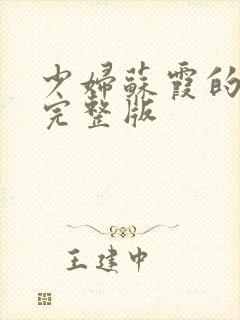 少婦蘇霞的
完整版
王建中